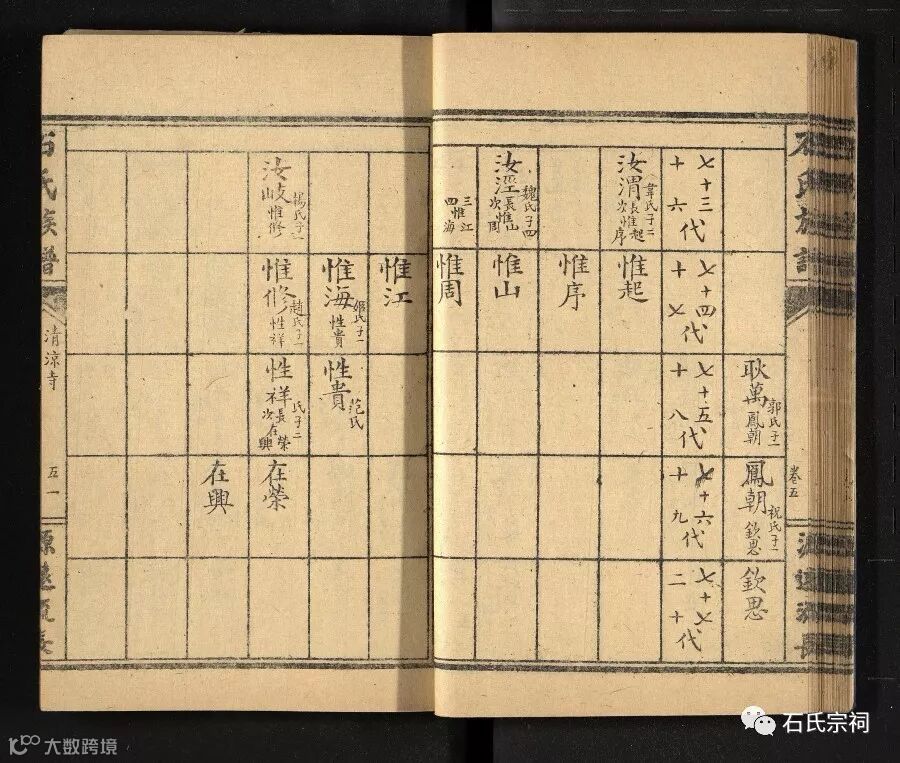 石氏族譜
卷五
源遠流長
耿萬
郭氏子一
鳳朝
鳳朝
祝氏子一
欽思
欽思
七十三代
十六
七十四代
十七
七十五代
十八
七十六代
十九
七十七代
二十
汝渭
韋氏子二
長惟起
次惟序
惟起
惟序
汝涇
魏氏子四
長惟山
次惟周
三惟江
四惟海
惟山
惟周
惟江
惟海
姬氏子一
性貴
性貴
范氏
汝岐
楊氏子一
惟修
惟修
趙氏子一
性祥
性祥
氏子二
長在榮
次在興
在榮
在興
石氏族譜
清涼寺
五一
源遠流長
石氏宗祠
大数跨境